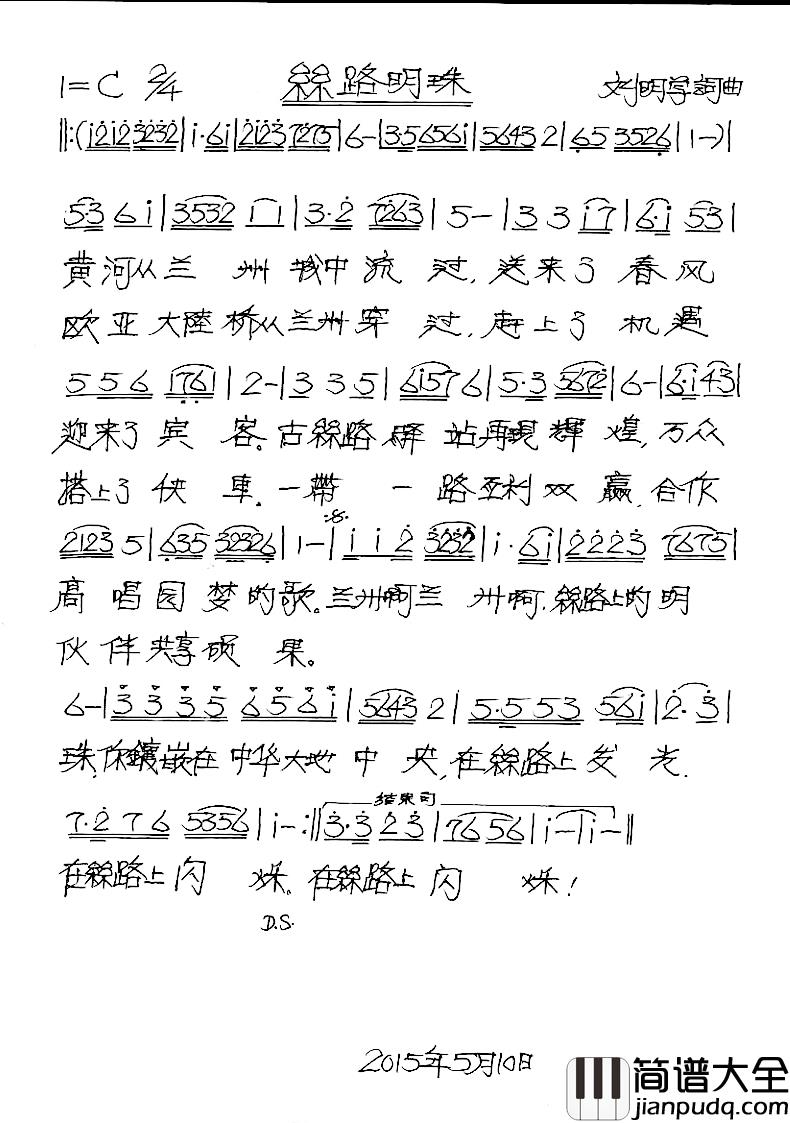 1=C 2/4 絲路明珠 刘明学詞曲
‖:(i2i2 3232|i·6i|2123 7275|6-|3·56561|5643 2|65 3526|1-)|
53 6 i|3532 1 1|3·2 7263|5-|3 3 i7|6·i 53|
黄河从兰 州城中流 过,送来了 春风
欧亚大陸桥从兰州穿 过,赶上了 机遇
5 5 6 1761|2-|3 3 5|6i57 6|5·3 5672|6-|6·i 43|
迎来了宾 客。古絲路驿 站再現輝 煌,万众
搭上了快 車。一帶 一 路互利双 赢,合作
2123 5|635 32326|1-|i i 2 3232|i·6i|2223 7675|
高 唱园 梦的歌。兰州啊兰 州啊,絲路上的明
伙伴共享硕 果。
6-|3 3 3 5 6 5 6 i|5643 2|5·5 5 3 56i|2·3|
珠,你鑲嵌在中华大地 中 央,在絲路上发 光.
7·2 7 6 5356|i-:‖3·3 2 3|7656|i-|i-‖
结束句
在絲路上闪 烁。在絲路上闪 烁!
D.S.
2015年5月10日
简谱大全
jianpudq.com